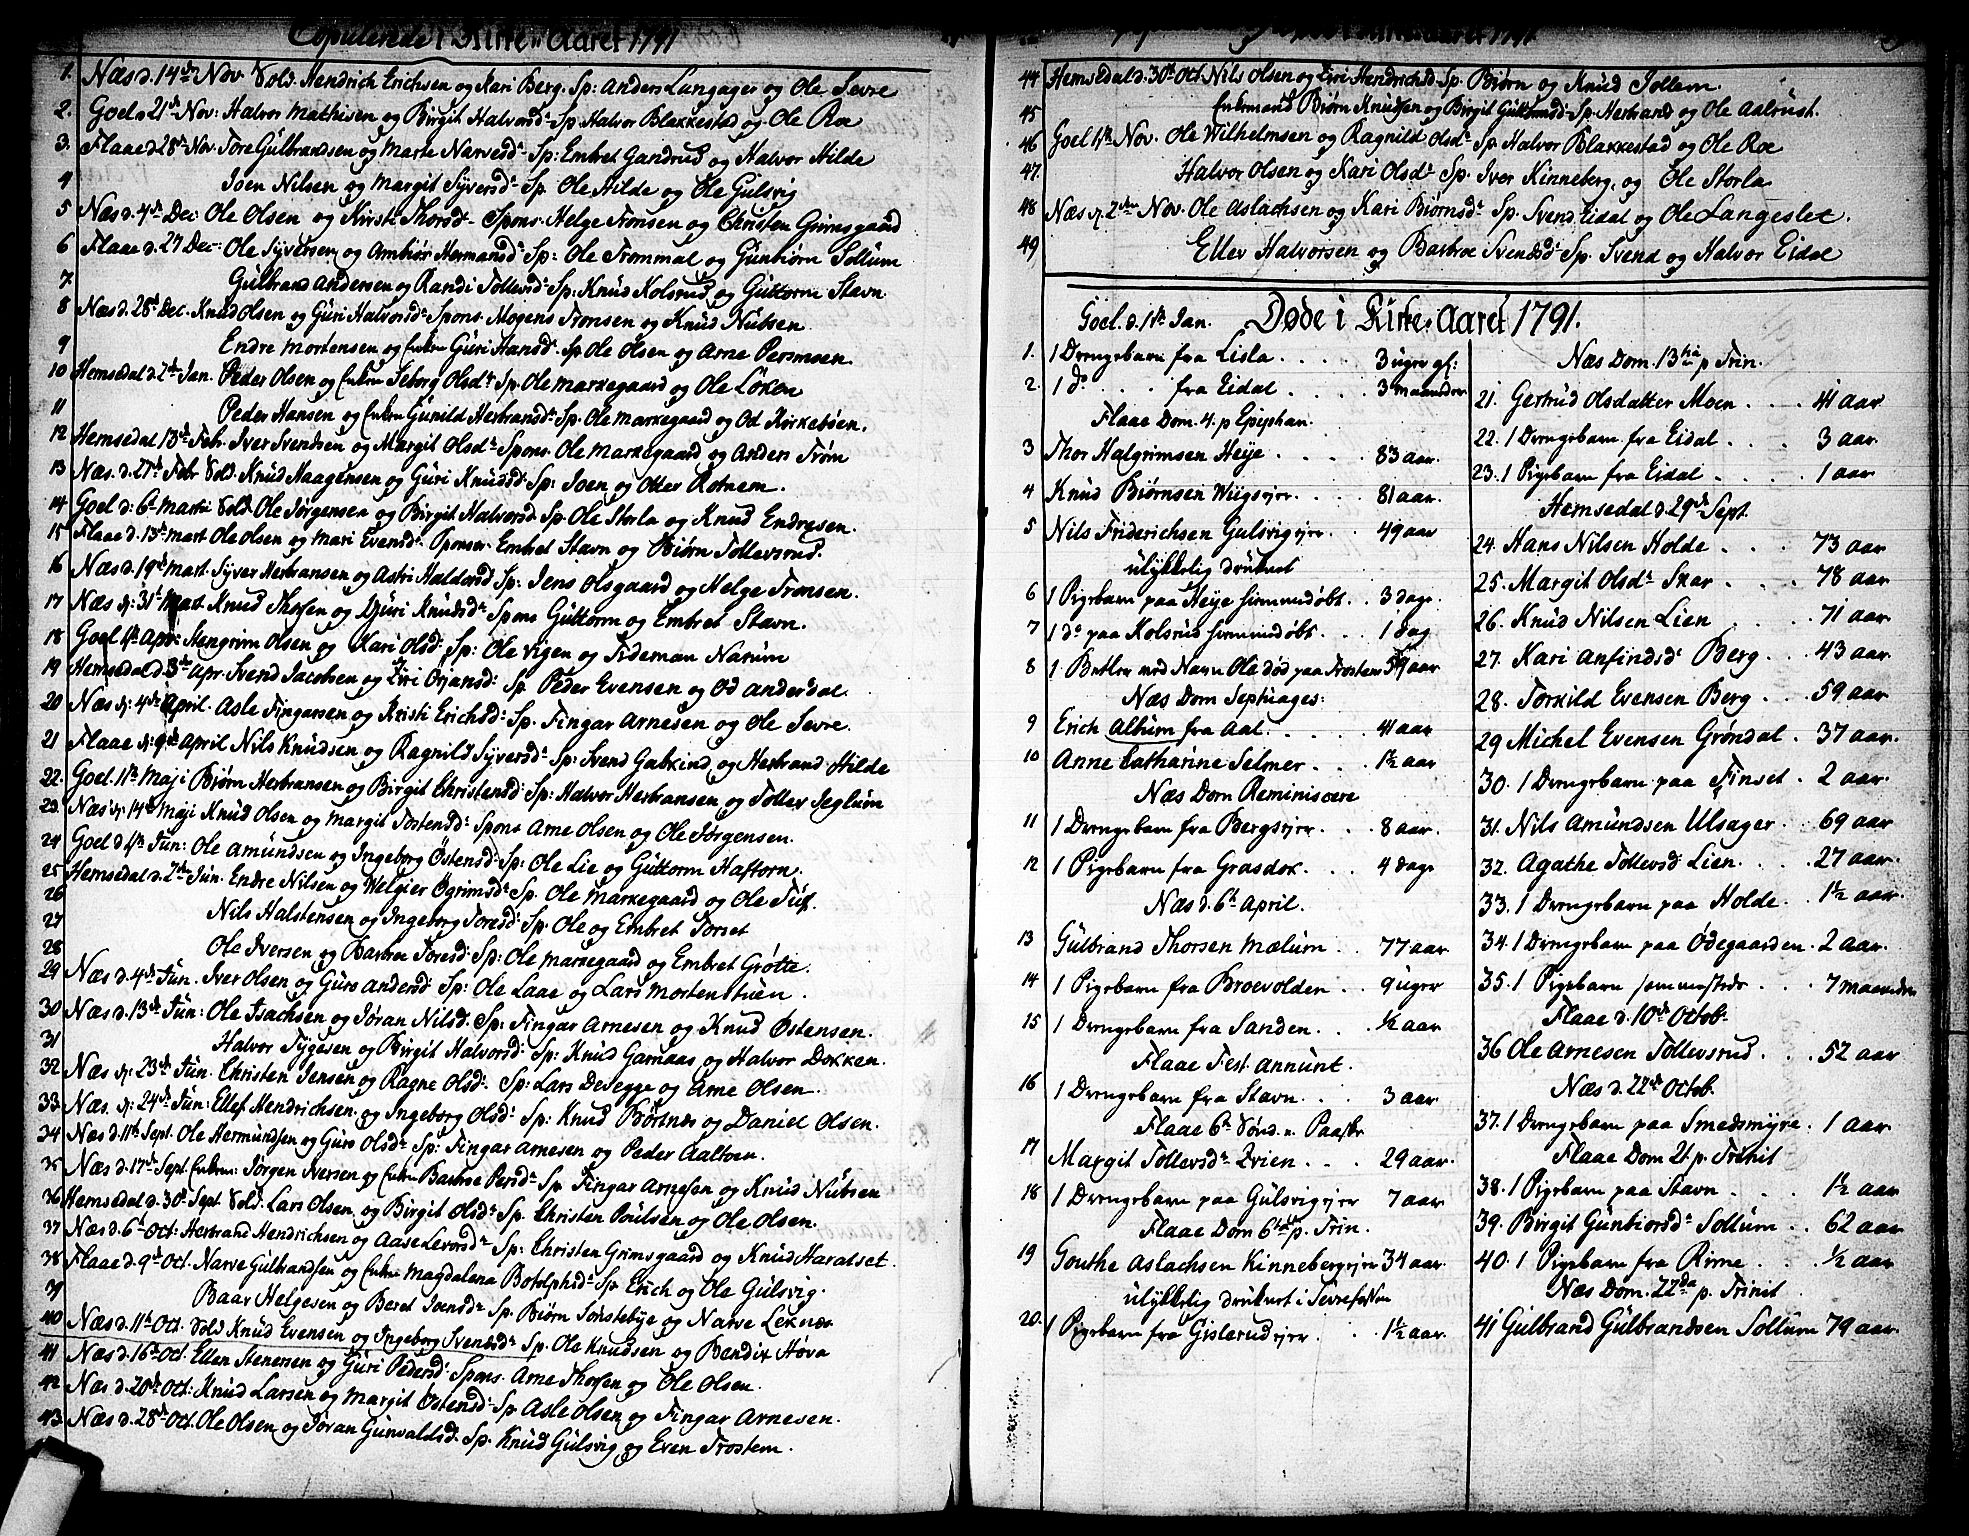 Copulerede i Kirke-Aaret 1791
1. Næs d. 14de Nov Sold. Hendrich Erichsen og Kari Berg. Sp: Anders Langager og Ole Sevre
2. Goel d 21de Nov: Halvor Mathisen og Birgit Halvorsd. Sp. Halvor Blakkestad og Ole Roe
3. Flaae d 28de Nov. Tore Gulbrandsen og Marte Narvesdr. Sp: Embret Gandrud og Halvor Hilde
4 Joen Nilsen og Margit Syversdr. Sp. Ole Hilde og Ole Gulsvig
5 Næs d. 4de Dec: Ole Olsen og Kirsti Thorsdr. Spons. Helge Tronsen og Christen Grimsgaard
6 Flaae d. 27 Dec: Ole Syversen og Ambiør Hermansdr. Sp: Ole Trommal og Gunbiørn Sollum
7. Gulbrand Andersen og Randi Tollevsdr. Sp: Knud Kolsrud og Guttorm Stavn
8 Næs d. 28de Dec. Knud Olsen og Guri Halvorsdr. Spons. Mogens Tronsen og Knud Nubsen
9 Endre Mortensen og Enken Guri Hansdr. Sp. Ole Olsen og Arne Persmoen.
10 Hemsedal d. 2de Jan. Peder Olsen og Enken Seborg Olsdr. Sp. Ole Markegaard og Ole Løken
11 Peder Hansen og Enken Gunild Herbransdr. Sp. Ole Markegaard og Od Kirkebøen.
12 Hemsedal 13de Febr. Iver Svendsen og Margit Olsdr. Spons. Ole Markegaard og Anders Trøm
13 Næs. d. 27de Febr Sold. Knud Haagensen og Guri Knudsdr. Sp: Joen og Otter Rotnem.
14 Goel d: 6te Martii Sold. Ole Jørgensen og Birgit Halvorsd. Sp. Ole Storla og Knud Endresen.
15 Flaae d. 13de Mart Ole Olsen og Mari Evensdr. Sponser. Embret Stavn og Biørn Tollevsrud.
16 Næs d. 19de Mart. Syver Herbransen og Astri Haldorsd Sp: Jens Olsgaard og Helge Tronsen.
17 Næs d: 31te Mart Knud Thorsen og Djuri Knudsdr. Spons Guttorm og Embret Stavn.
18 Goel 1ste Apr: Stengrim Olsen og Kari Olsd: Sp: Ole Vigen og Tideman Narum
19 Hemsedal d. 3de Apr. Svend Jacobsen og Eiri Orjansd: Sp. Peder Evensen og Od Anderdal.
20 Næs d: 4de April. Asle Fingarsen og Kristi Erichsdr. Sp. Fingar Arnesen og Ole Sevre.
21 Flaae d: 9de April Nils Knudsen og Ragnild Syversdr. Sp: Svend Gabkind og Herbrand Hilde
22. Goel 11te Maji Biørn Herbransen og Birgit Christensd: Sp: Halvor Herbransen og Tollev Jeglum
23. Næs d: 14de Maji Knud Olsen og Margit Tostensd: Spons Arne Olsen og Ole Jørgensen.
24 Goel d 1ste Jun: Ole Amundsen og Ingeborg Østensd: Sp: Ole Lie og Guttorm Haftorn.
25 Hemsedal d. 2den Jun. Endre Nilsen og Welgier Ogrimsdr. Sp. Ole Markegaard og Ole Tuf.
26 Nils Halstensen og Ingeborg Toresd: Sp. Ole og Embret Torset
27
28 Ole Iversen og Barbroe Toresd: Sp: Ole Markegaard og Embret Grøtte.
29 Næs d. 4de Jun. Iver Olsen og Guro Andersd: Sp: Ole Laae og Lars Mortenstuen.
30 Næs d. 13de Jun: Ole Isachsen og Jøran Nilsd: Sp: Fingar Arnesen og Knud Østensen.
31 Halvor Tygesen og Birgit Halvorsd: Sp: Knud Garnaas og Halvor Dokken.
32 Næs d: 23de Jun. Christen Jensen og Ragne Olsd: Sp: Lars Devegge og Arne Olsen.
33 Næs. d: 24de Jun: Ellef Hendrichsen og Ingeborg Olsd: Sp: Knud Børtnes og Daniel Olsen.
34 Næs d. 11te Sept. Ole Hermundsen og Guro Olsdr. Sp: Fingar Arnesen og Peder Aaltven.
35 Næs d. 17de Sept Enkem: Jørgen Iversen og Enken Barbroe Persdr. Sp. Fingar Arnesen og Knud Nubsen
36 Hemsedal d. 30te Sept. Sold. Lars Olsen og Birgit Olsdr. Sp. Christen Poulsen og Ole Olsen.
37 Næs d. 6te Oct: Herbrand Hendrichsen og Aase Levordr. Sp: Christen Grimsgaard og Knud Haralset.
38 Flaae d. 9de Oct. Narve Gulbrandsen og Enken Magdalena Botolphsdr. Sp. Erich og Ole Gulsvig.
39 Baar Helgesen og Beret Joensdr. Sp. Biørn Sorstebye og Narve Leknes
40 Næs d. 11te Oct. Sold Knud Evensen og Ingeborg Svensdr. Sp. Ole Knudsen og Bendix Høva
41 Næs d. 16de Oct. Ellen Stenersen og Guri Pedersd: Spons. Arne Thorsen og Ole Olsen.
42 Næs d. 20de Oct: Knud Larsen og Margit Østensd: Sp. Asle Olsen og Fingar Arnesen.
43. Næs d. 28de Oct. Ole Olsen og Jøran Gunvaldsd. Sp. Knud Gulsvig og Even Trostem.
44 Hemsedal d. 30te Oct. Nils Olsen og Eiri Hendrichsd. Sp. Biørn og Knud Tollem.
45 Enkemand Biørn Knudsen og Birgit Guttormsd. Sp. Herbrand og Ole Aalrust.
46 Goel 1ste Nov. Ole Wilhelmsen og Ragnild Olsdr. Sp. Halvor Blakkestad og Ole Roe
47. Halvor Olsen og Kari Olsdr. Sp. Iver Kinneberg og Ole Storla
48 Næs d. 2den Nov. Ole Aslachsen og Kari Biørnsdr. Sp. Svend Eidal og Ole Langeslet.
49 Ellev Halvorsen og Barbroe Svendsdr. Sp. Svend og Halvor Eidal
Goel. d. 1ste Jan. Døde i Kirke-Aaret 1791.
1. 1 Drengebarn fra Lisla.... 3 uger gl:
2. 1 do. fra Eidal.... 3 maaneder
Flaae Dom. 4. p Epiphan.
3 Thor Halgrimsen Heije.... 83 aar.
4 Knud Biørnsen Wiigsejer... 81 aar.
5 Nils Friderichsen Gulsvigejer.. 49 aar
ulykkelig druknet
6 1 Pigebarn paa Heije hiemmedøbt.. 3 dage
7 1 do paa Kolsrud hiemmedøbt.. 1 dag
8 1 Betler med Navn Ole død paa Trostem 59 aar
Næs Dom Septuages:
9 Erich Album fra Aal..... 41 aar
10 Anne Catharine Selmer... 1½ aar
Næs Dom Reminiscere
11 1 Drengebarn fra Bergsejer... 8 aar.
12 1 Pigebarn fra Grasdok... 4 dage
Næs d. 6te April.
13 Gulbrand Thorsen Mælum.. 77 aar.
14 1 Pigebarn fra Broevolden.. 9 uger
15 1 Drengebarn fra Sanden... ½ aar
Flaae Fest. Annunt.
16 1 Drengebarn fra Stavn.... 3 aar
Flaae 6te Sønd. n. Paaske
17 Margit Tollevsdr. Trien... 29 aar.
18 1 Drengebarn paa Gulsvigejer 7 aar
Flaae Dom 6te p. Trin.
19 Gouthe Aslachsen Kinnebergejer 34 aar.
ulykkelig druknet i Sevrefossen
20. 1 Pigebarn fra Gislerudejer.. 1½ aar.
Næs Dom. 13tia p Trin.
21. Gertrud Olsdatter Moen.... 41 aar
22. 1 Drengebarn fra Eidal... 3 aar.
23. 1 Pigebarn fra Eidal... 1 aar
Hemsedal d. 29de Sept.
24. Hans Nilsen Holde.... 73 aar
25. Margit Olsdr. Skar.... 78 aar
26. Knud Nilsen Lien.... 71 aar
27. Kari Anfindsdr. Berg.. 43 aar
28. Torkild Evensen Berg.. 59 aar
29 Michel Evensen Grøndal. 37 aar.
30. 1 Drengebarn paa Finset. 2 aar.
31. Nils Amundsen Ulsager.. 69 aar
32. Agathe Tollevsd Lien... 27 aar.
33. 1 Drengebarn paa Holde.. 1½ aar
34. 1 Drengebarn paa Ødegaarden. 2 aar.
35. 1 Pigebarn sammesteds... 7 maaneder
Flaae d. 10de Octob.
36 Ole Arnesen Tollevsrud... 52 aar
Næs d. 22de Octob.
37. 1 Drengebarn paa Smedsmyre. 1 aar
Flaae Dom 21. p. Trinit
38. 1 Pigebarn paa Stavn.... 1½ aar
39. Birgit Gunbiorsdr. Sollum.. 62 aar
40. 1 Pigebarn fra Rime... ½ aar
Næs Dom. 22da p. Trinit
41 Gulbrand Gulbrandsen Sollum 79 aar.